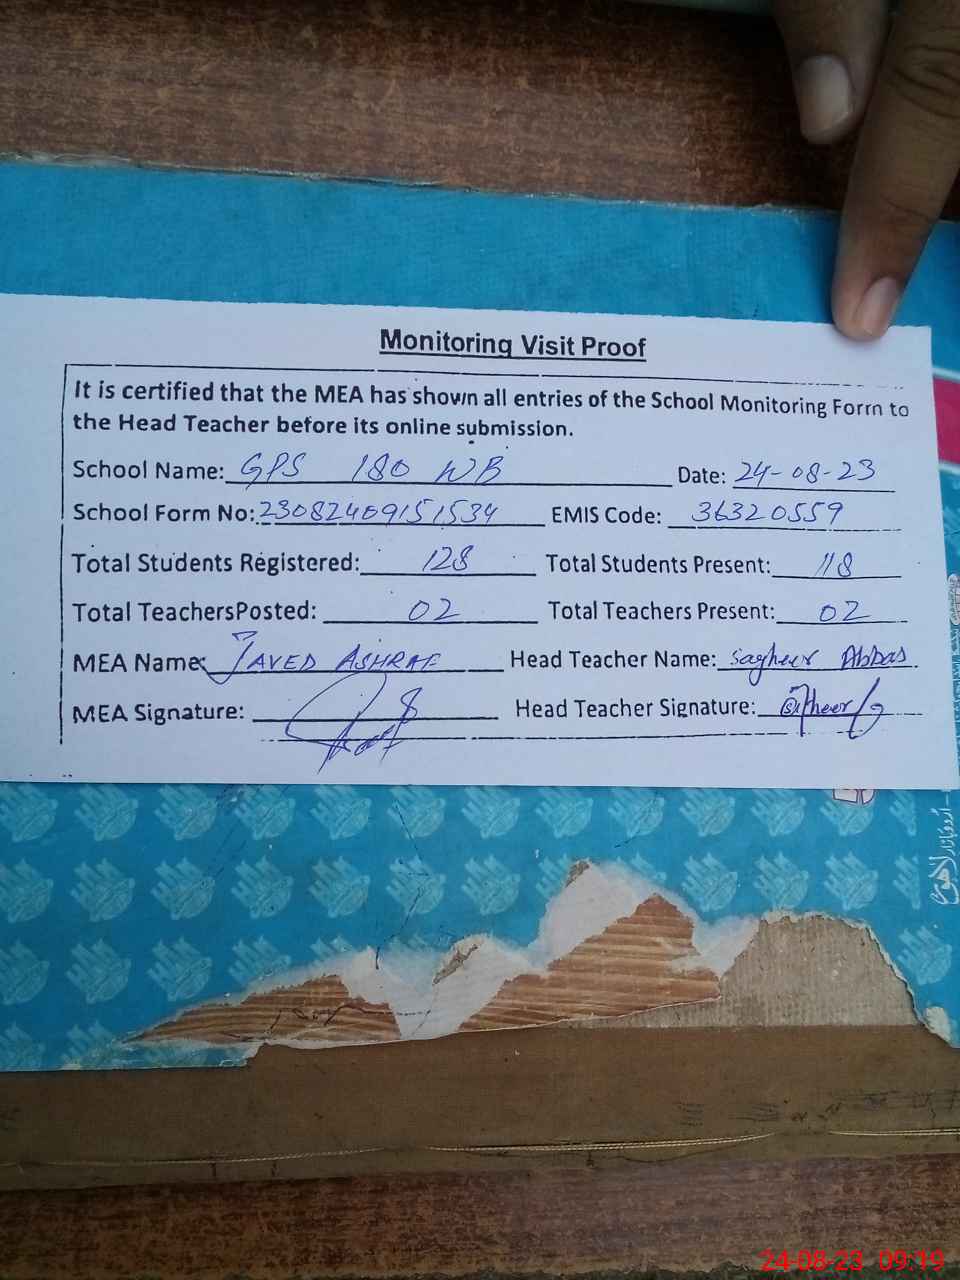 Monitoring Visit Proof
It is certified that the MEA has shown all entries of the School Monitoring Form to
the Head Teacher before its online submission.
School Name: GPS 180 WB Date: 24-08-23
School Form No: 23082409151534 EMIS Code: 36320559
Total Students Registered: 128 Total Students Present: 118
Total TeachersPosted: 02 Total Teachers Present: 02
MEA Name: JAVED ASHRAF Head Teacher Name: Sagheer Abbas
MEA Signature: Head Teacher Signature:
اردو بازار لاہور
24-08-23 09:19